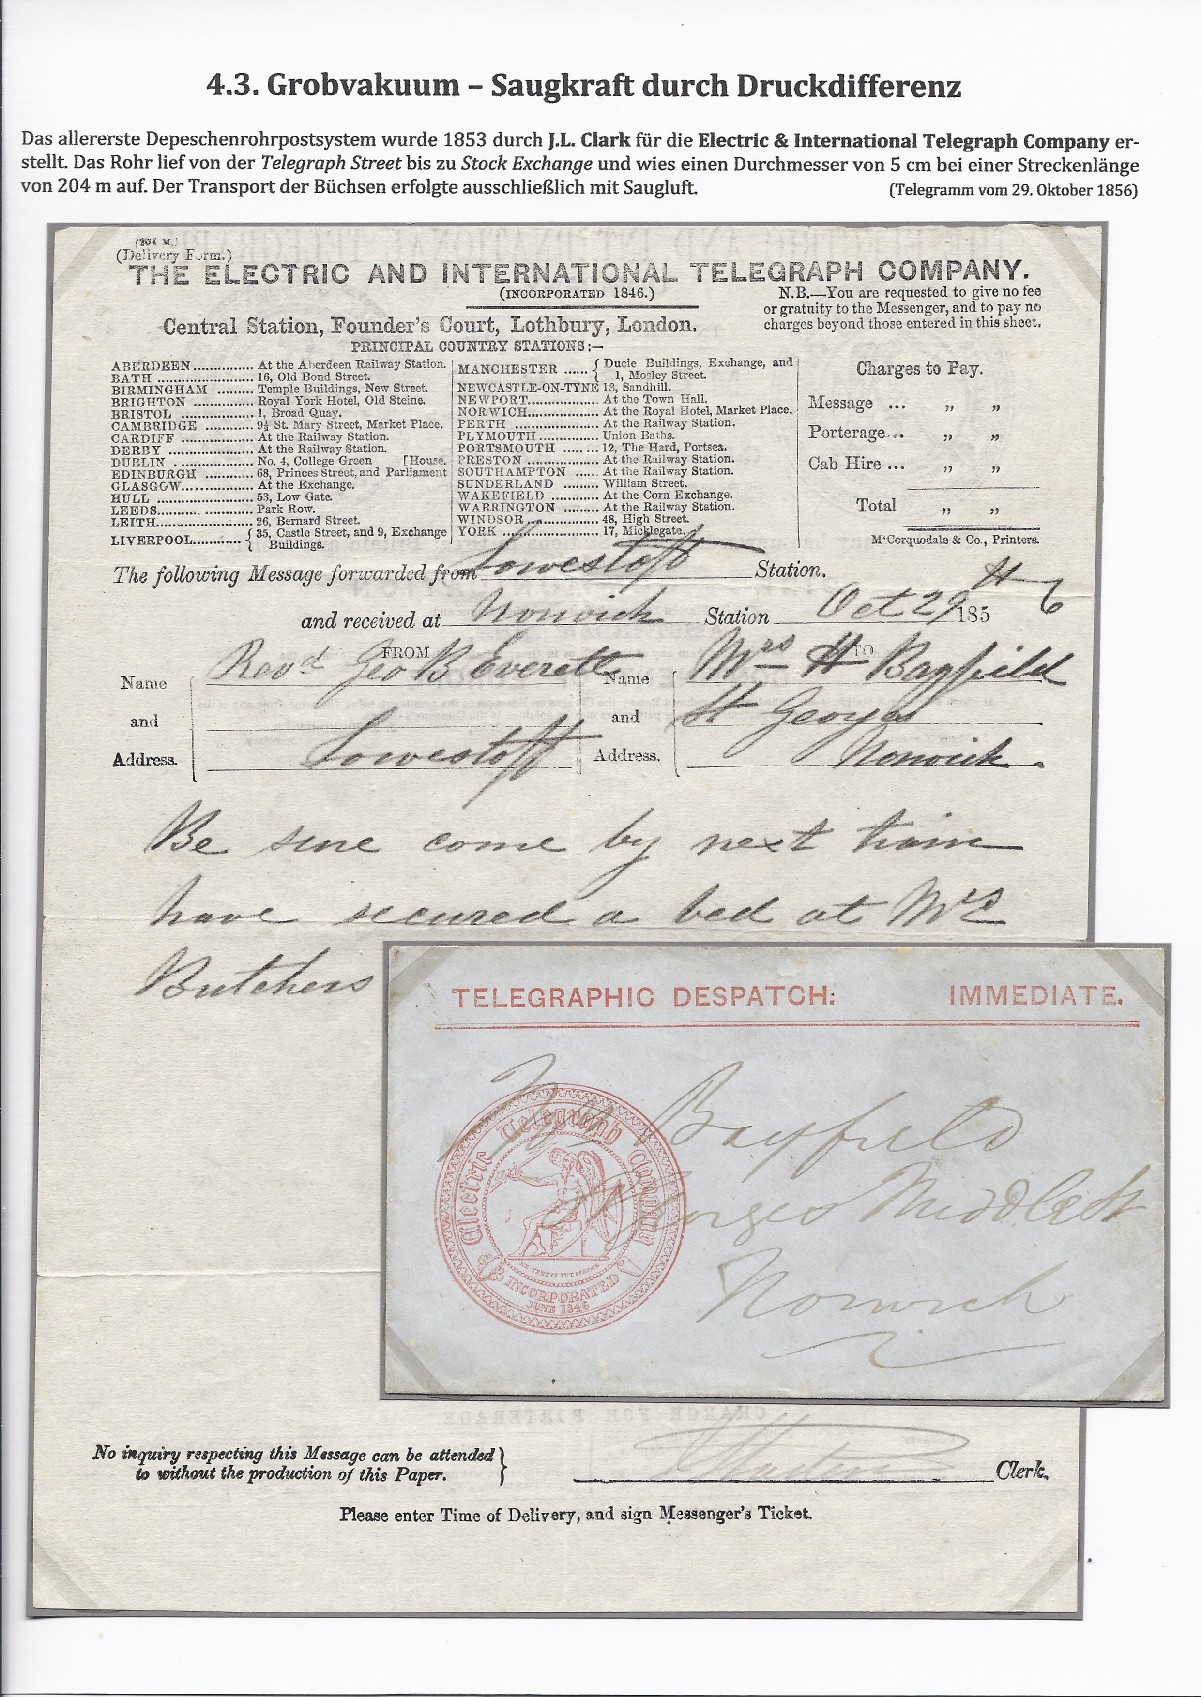 4.3. Grobvakuum – Saugkraft durch Druckdifferenz
Das allererste Depeschenrohrpostsystem wurde 1853 durch J.L. Clark für die Electric & International Telegraph Company er-
stellt. Das Rohr lief von der Telegraph Street bis zu Stock Exchange und wies einen Durchmesser von 5 cm bei einer Streckenlänge
von 204 m auf. Der Transport der Büchsen erfolgte ausschließlich mit Saugluft. (Telegramm vom 29. Oktober 1856)
(Delivery Form.)
THE ELECTRIC AND INTERNATIONAL TELEGRAPH COMPANY.
(INCORPORATED 1846.)
N.B.—You are requested to give no fee
or gratuity to the Messenger, and to pay no
charges beyond those entered in this sheet.
Central Station, Founder's Court, Lothbury, London.
PRINCIPAL COUNTRY STATIONS:—
ABERDEEN .............. At the Aberdeen Railway Station.
BATH .............. 16, Old Bond Street.
BIRMINGHAM ........ Temple Buildings, New Street.
BRIGHTON .......... Royal York Hotel, Old Steine.
BRISTOL ............ 1, Broad Quay.
CAMBRIDGE ......... 9½ St. Mary Street, Market Place.
CARDIFF ............ At the Railway Station.
DERBY .............. At the Railway Station.
DUBLIN ............. No. 4, College Green [House.
EDINBURGH ......... 68, Princes Street, and Parliament
GLASGOW............ At the Exchange.
HULL ............... 53, Low Gate.
LEEDS.............. Park Row.
LEITH............... 26, Bernard Street.
LIVERPOOL........... { 35, Castle Street, and 9, Exchange
Buildings.
MANCHESTER ..... { Ducie Buildings, Exchange, and
1, Mosley Street.
NEWCASTLE-ON-TYNE 13, Sandhill.
NEWPORT............. At the Town Hall.
NORWICH............. At the Royal Hotel, Market Place.
PERTH ............... At the Railway Station.
PLYMOUTH ............ Union Baths.
PORTSMOUTH ......... 12, The Hard, Portsea.
PRESTON .............. At the Railway Station.
SOUTHAMPTON ........ At the Railway Station.
SUNDERLAND ......... William Street.
WAKEFIELD ........... At the Corn Exchange.
WARRINGTON ......... At the Railway Station.
WINDSOR.............. 48, High Street.
YORK .................. 17, Micklegate.
Charges to Pay.
Message ... „ „
Porterage... „ „
Cab Hire ... „ „
Total „ „
M'Corquodale & Co., Printers.
The following Message forwarded from Lowestoft Station.
and received at Norwich Station Oct 29 1856
FROM TO
Name Revd Geo B Everett Name Mrs H Bayfield
and and St Georges
Address. Lowestoft Address. Norwich.
Be sure come by next train
have secured a bed at Mrs
Butchers
TELEGRAPHIC DESPATCH: IMMEDIATE.
Electric Telegraph Company
INCORPORATED
JUNE 1846
Bayfield
Georges Middle St
Norwich
No inquiry respecting this Message can be attended
to without the production of this Paper.
Clerk.
Please enter Time of Delivery, and sign Messenger's Ticket.